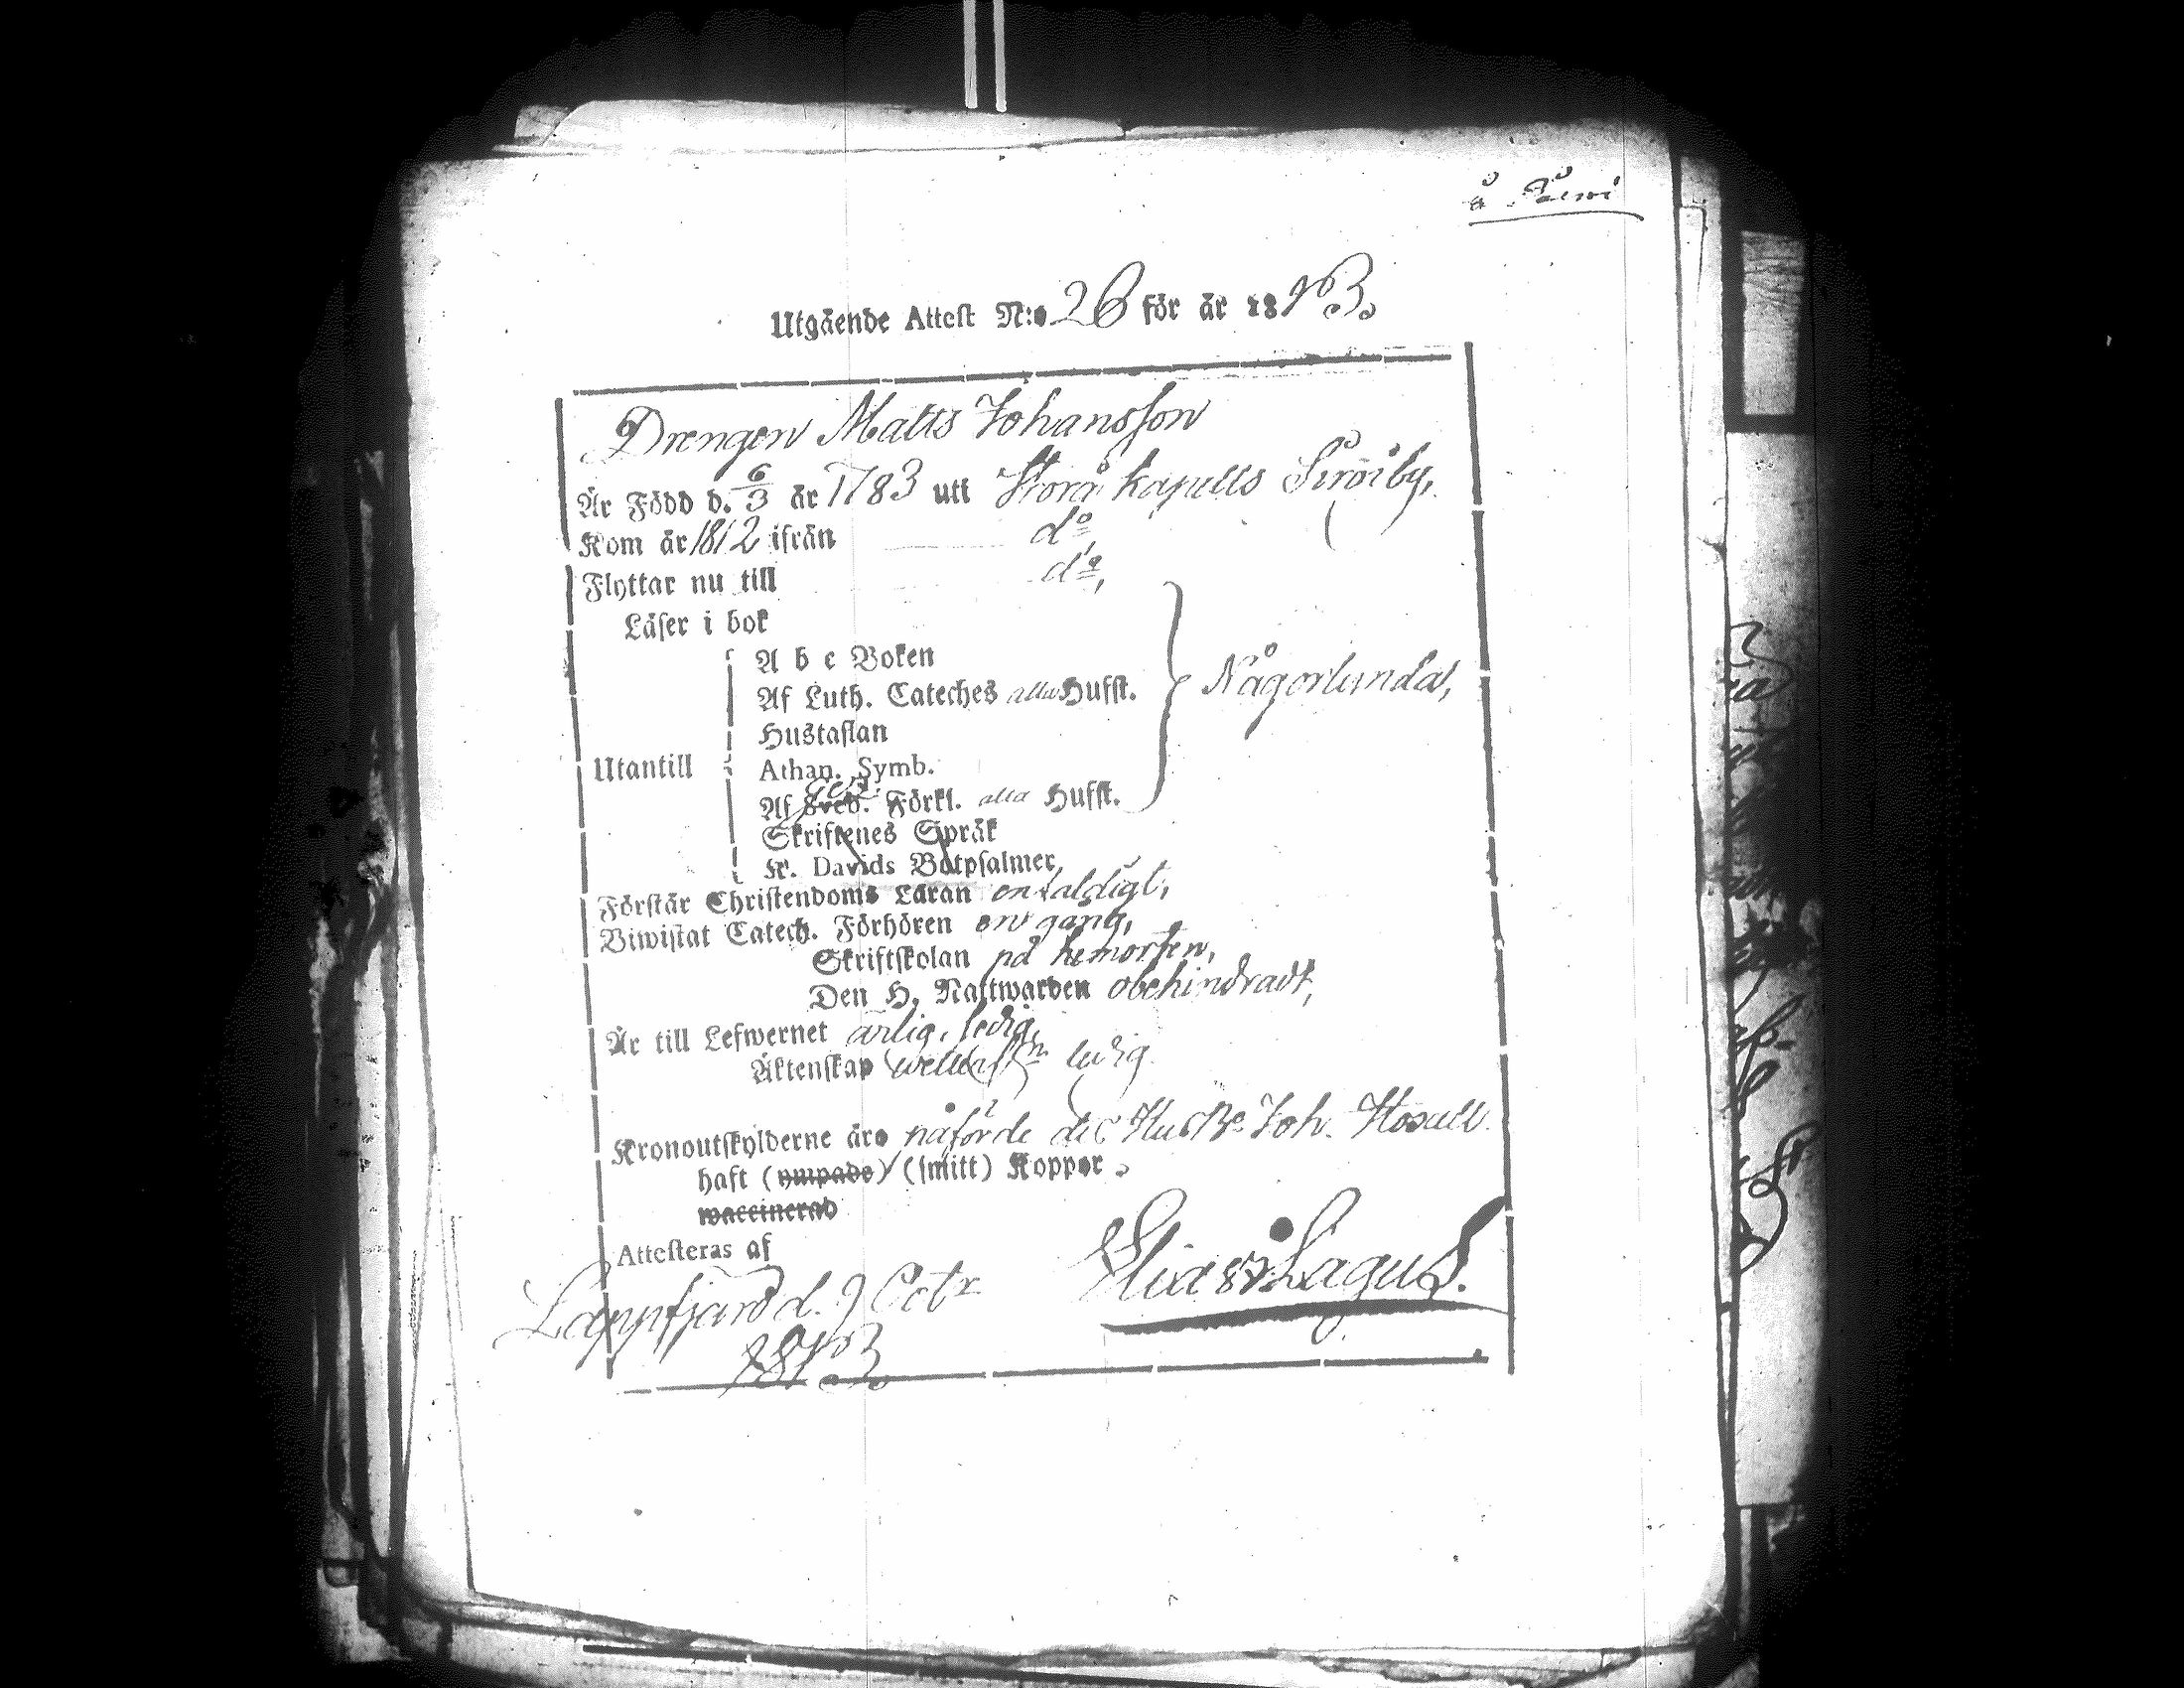 å
Utgående Attest N:o 26 för år 1813.
Drengen Matts Johansson
Är Född d. 6/3 år 1783 uti Storå kapells
Kom år 1812 ifrån do,
Flyttar nu till do,
Läser i bok
A b c Boken
Af Luth. Cateches alla Hufst.
Hustaflan
Någorlunda,
Utantill
Athan. Symb.
Af Sveb. Förkl. alla Hufst.
Skriftenes Språk
K. Davids Botpsalmer,
Förstår Christendoms Läran enfaldigt,
Biwistat Catech. Förhören en gång,
Skriftskolan på hemorten,
Den H. Nattwarden obehindradt,
Är till Lefwernet ärlig,
Äktenskap ledig
Kronoutskylderne äro påförde Joh.
haft (ympade) (smitt) Koppor
waccinerad
Attesteras af
Lappfjärd d. 9 Octr Elias Lagus.
1813.